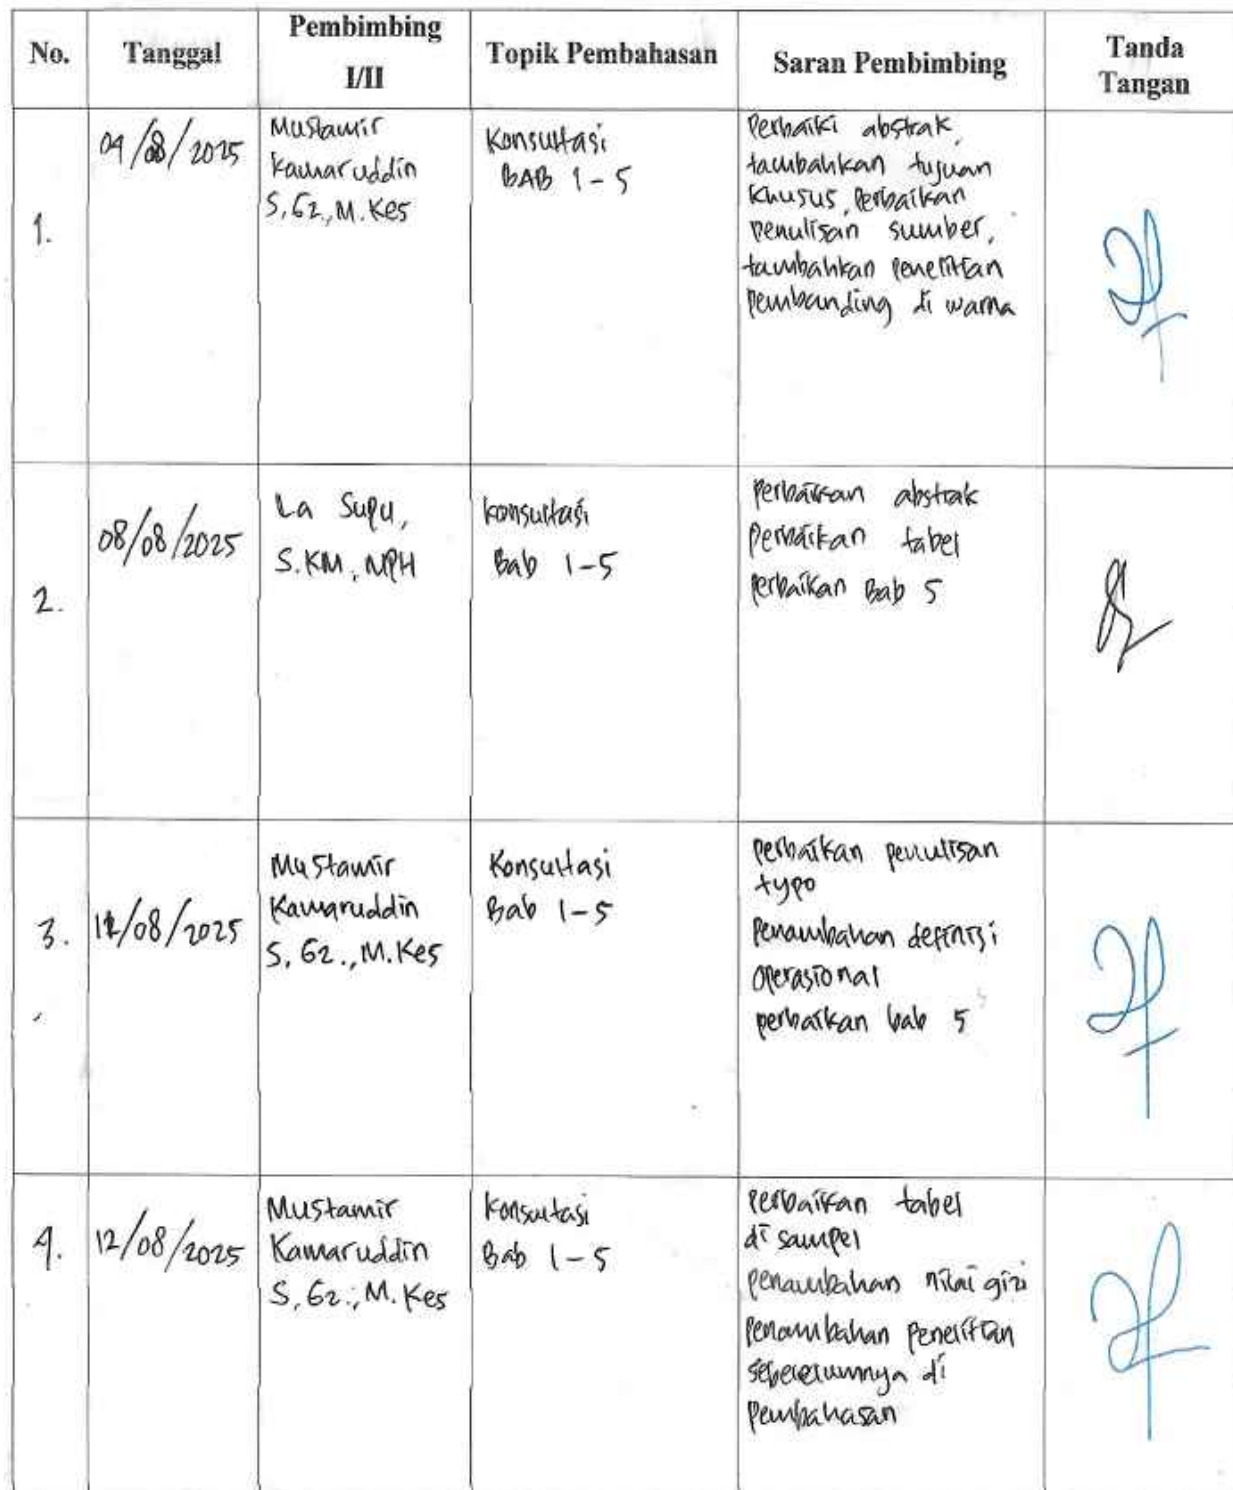 No.
Tanggal
Pembimbing
I/II
Topik Pembahasan
Saran Pembimbing
Tanda
Tangan
1.
04/08/2025
Mustamir
Kamaruddin
S,Gz., M.Kes
Konsultasi
BAB 1-5
Perbaiki abstrak,
tambahkan tujuan
khusus, Perbaikan
penulisan sumber,
tambahkan penelitian
pembanding di warna
2.
08/08/2025
La Supu,
S.KM, MPH
konsultasi
Bab 1-5
perbaikan abstrak
Perbaikan tabel
perbaikan Bab 5
3.
11/08/2025
Mustamir
Kamaruddin
S, Gz., M.Kes
Konsultasi
Bab 1-5
perbaikan penulisan
typo
Penambahan definisi
operasional
perbaikan bab 5
4.
12/08/2025
Mustamir
Kamaruddin
S, Gz., M. Kes
Konsultasi
Bab 1-5
Perbaikan tabel
di sampel
penambahan nilai gizi
Penambahan penelitian
di
Pembahasan